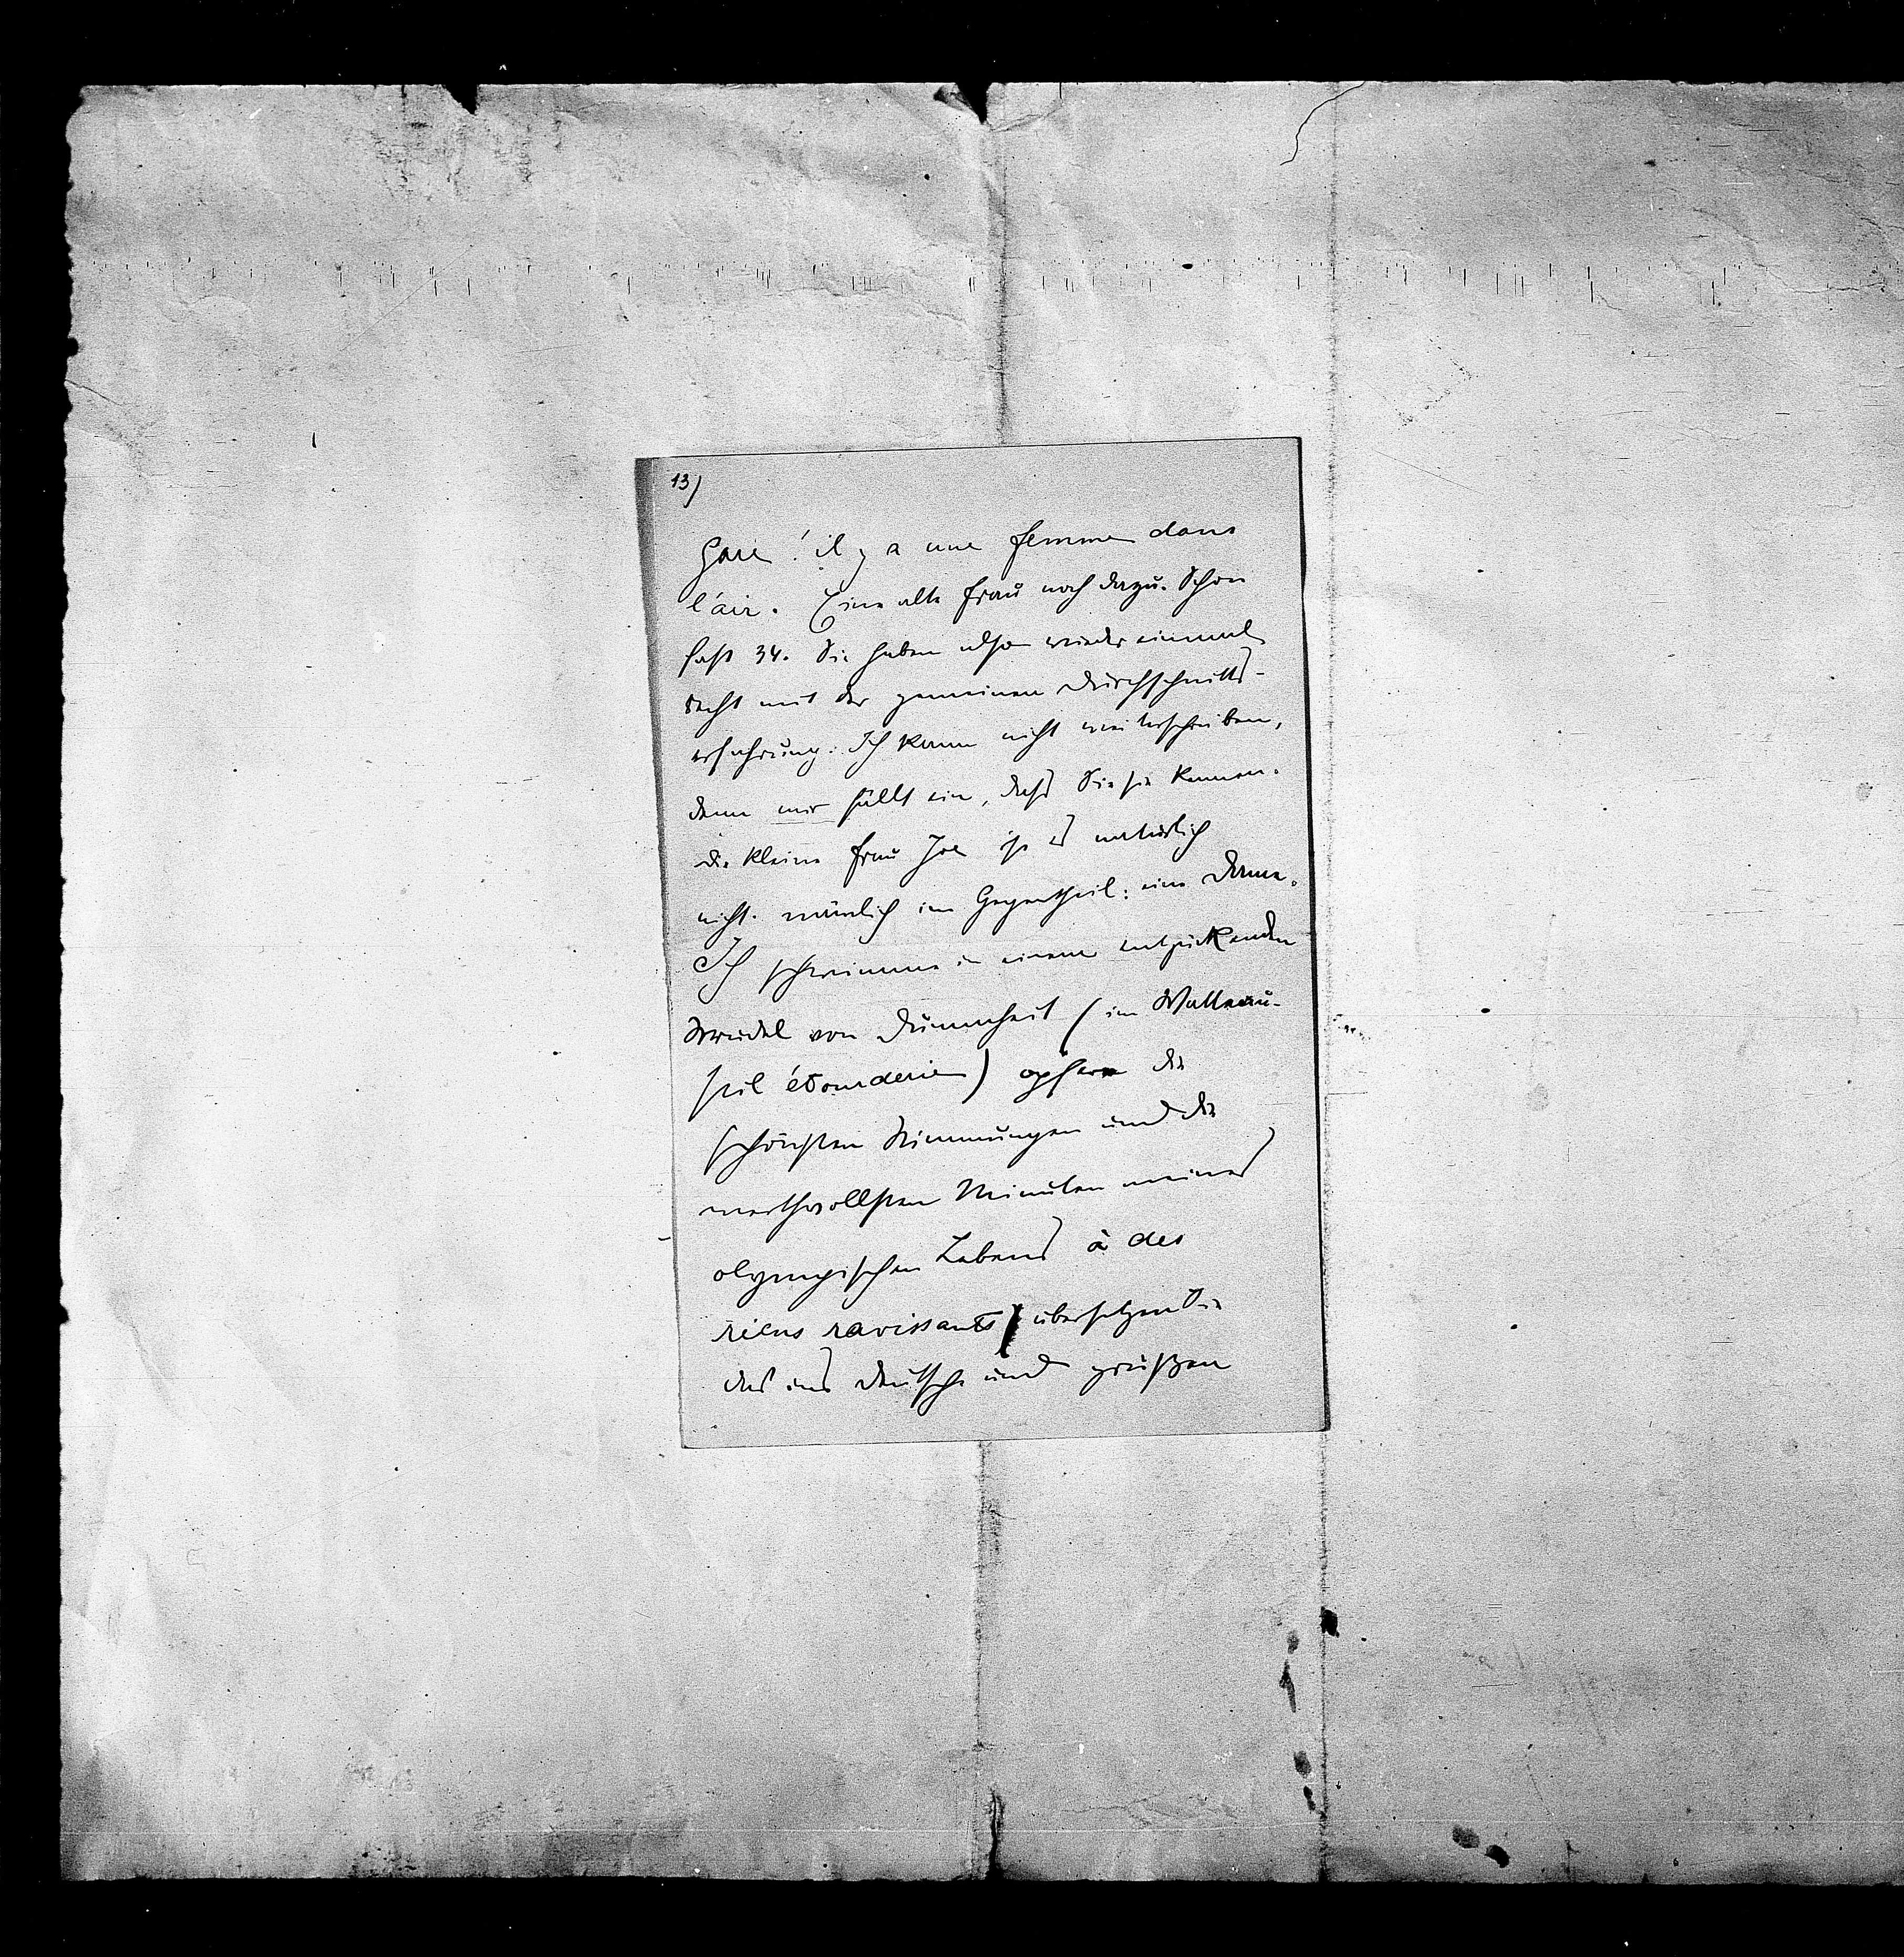 13)
Gare! il y a une femme dans
l'air. Eine alte Frau noch dazu. Schon
fast 34. Sie haben also wieder einmal
recht mit der gemeinen Durchschnitts-
erfahrung. Ich kann nicht weiterschreiben,
denn mir fällt ein, dass Sie sie kennen.
die kleine Frau ist es natürlich
nicht. nämlich im Gegentheil: eine Dame.
Ich schwimme in einem entzückenden
Strudel von Dummheit (im Watteau-
stil étourderie) opfere die
schönsten Stimmungen und die
werthvollsten Minuten meines
olympischen Lebens à des
riens ravissants übersetzen Sie
das ins deutsche und grüßen